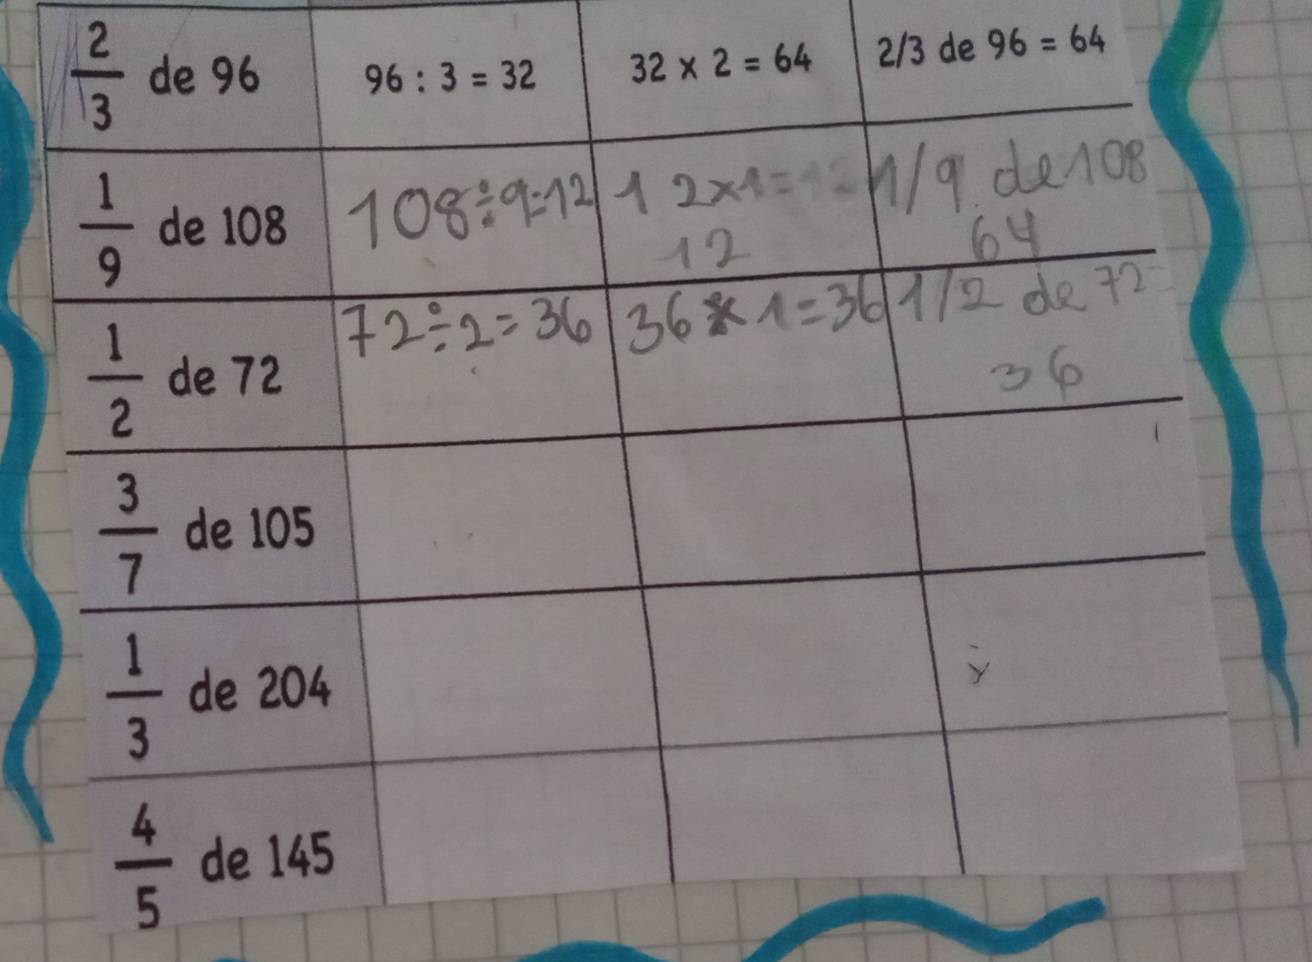 2/3 de 96 96 : 3 = 32 32 × 2 = 64 2/3 de 96 = 64
1/9 de 108 108÷9=12 12×1=12 1/9 de 108
12 64
1/2 de 72 72÷2=36 36×1=36 1/2 de 72
36
3/7 de 105
1/3 de 204
4/5 de 145